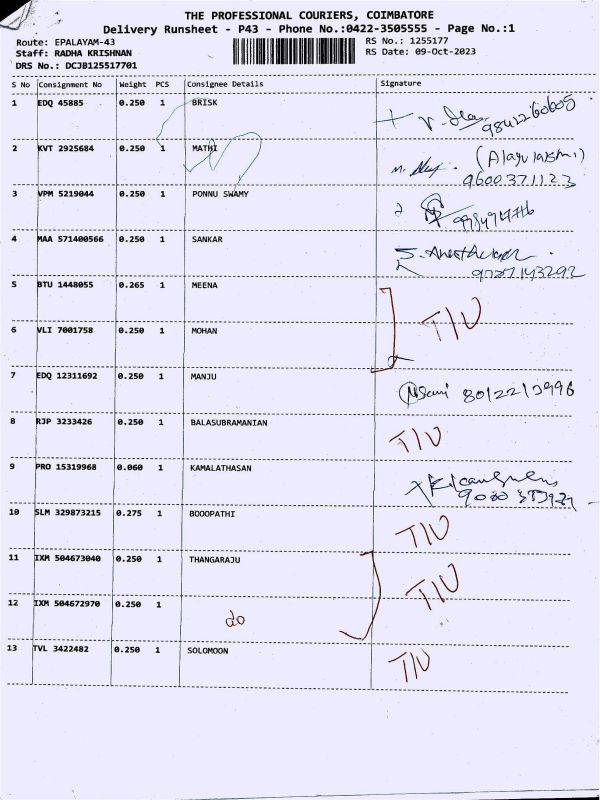 THE PROFESSIONAL COURIERS, COIMBATORE
Delivery Runsheet - P43 - Phone No.:0422-3505555 - Page No.:1
Route: EPALAYAM-43
RS No.: 1255177
Staff: RADHA KRISHNAN
RS Date: 09-Oct-2023
DRS No.: DCJB125517701
S No Consignment No Weight PCS Consignee Details Signature
1 EDQ 45885 0.250 1 BRISK
2 KVT 2925684 0.250 1 MATHI
9600371123
3 VPM 5219044 0.250 1 PONNU SWAMY
4 MAA 571400566 0.250 1 SANKAR
5 BTU 1448055 0.265 1 MEENA
6 VLI 7001758 0.250 1 MOHAN
T/U
7 EDQ 12311692 0.250 1 MANJU
8 RJP 3233426 0.250 1 BALASUBRAMANIAN
T/U
9 PRO 15319968 0.060 1 KAMALATHASAN
10 SLM 329873215 0.275 1 BOOOPATHI
T/U
11 IXM 504673040 0.250 1 THANGARAJU
T/U
12 IXM 504672970 0.250 1
do
13 TVL 3422482 0.250 1 SOLOMOON
T/U